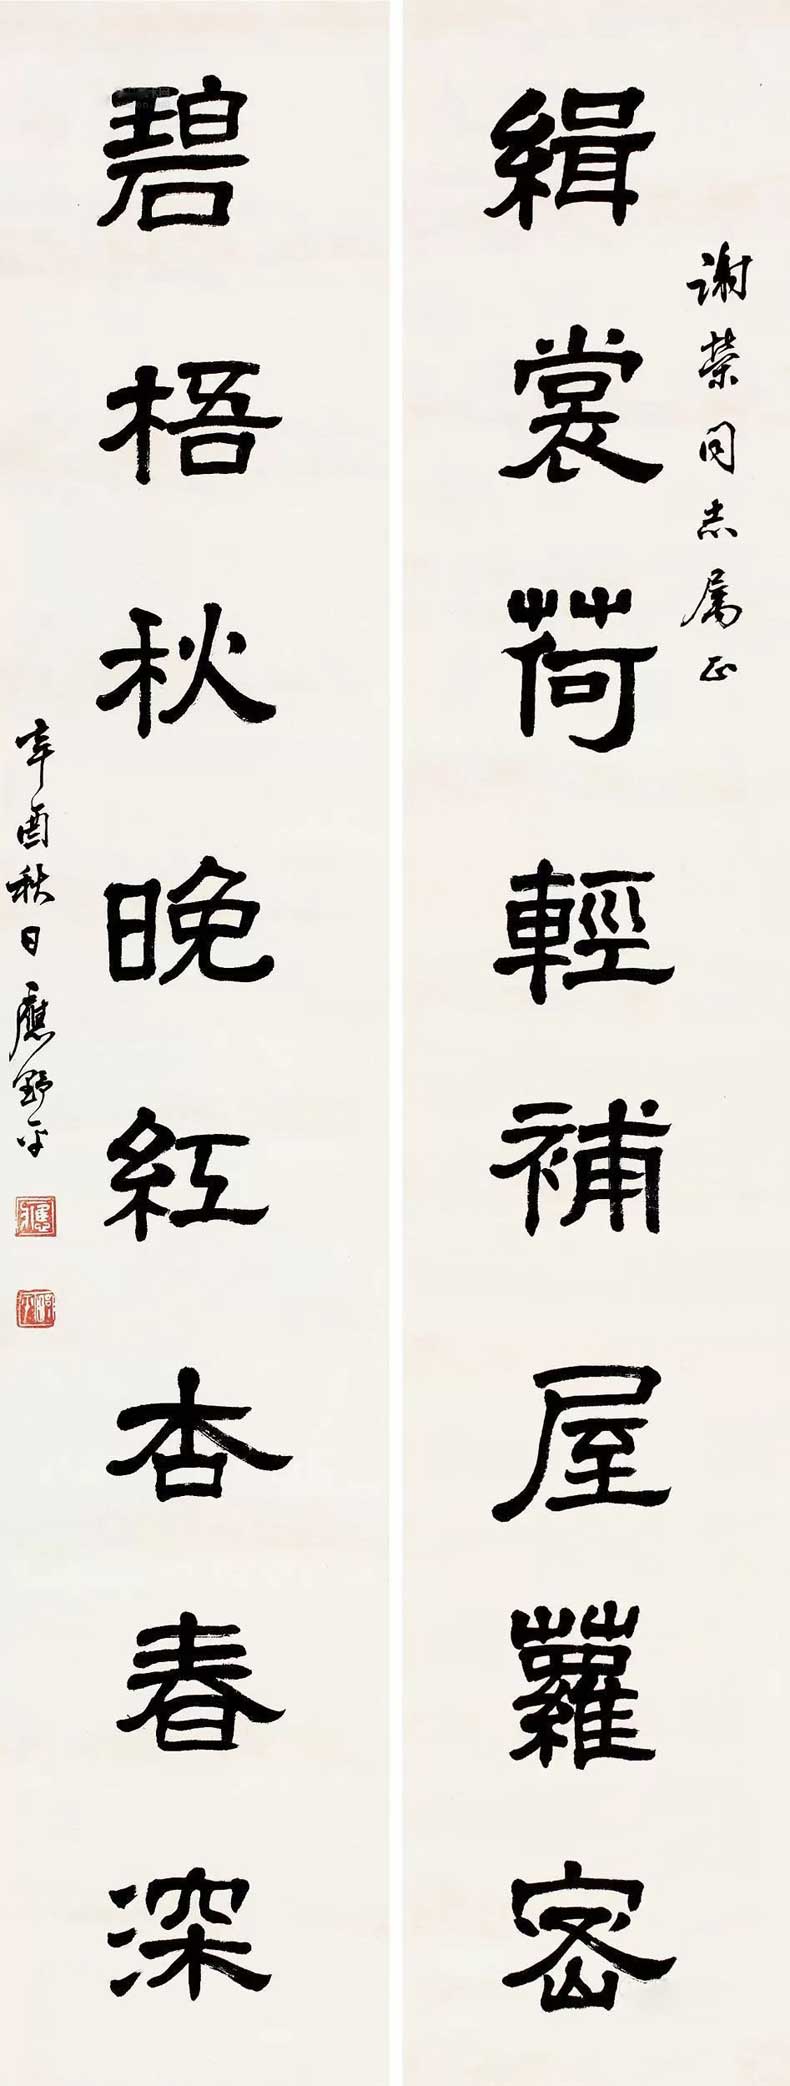 謝榮同志属正
緝裳荷輕補屋蘿密
碧梧秋晚紅杏春深
辛酉秋日應野平